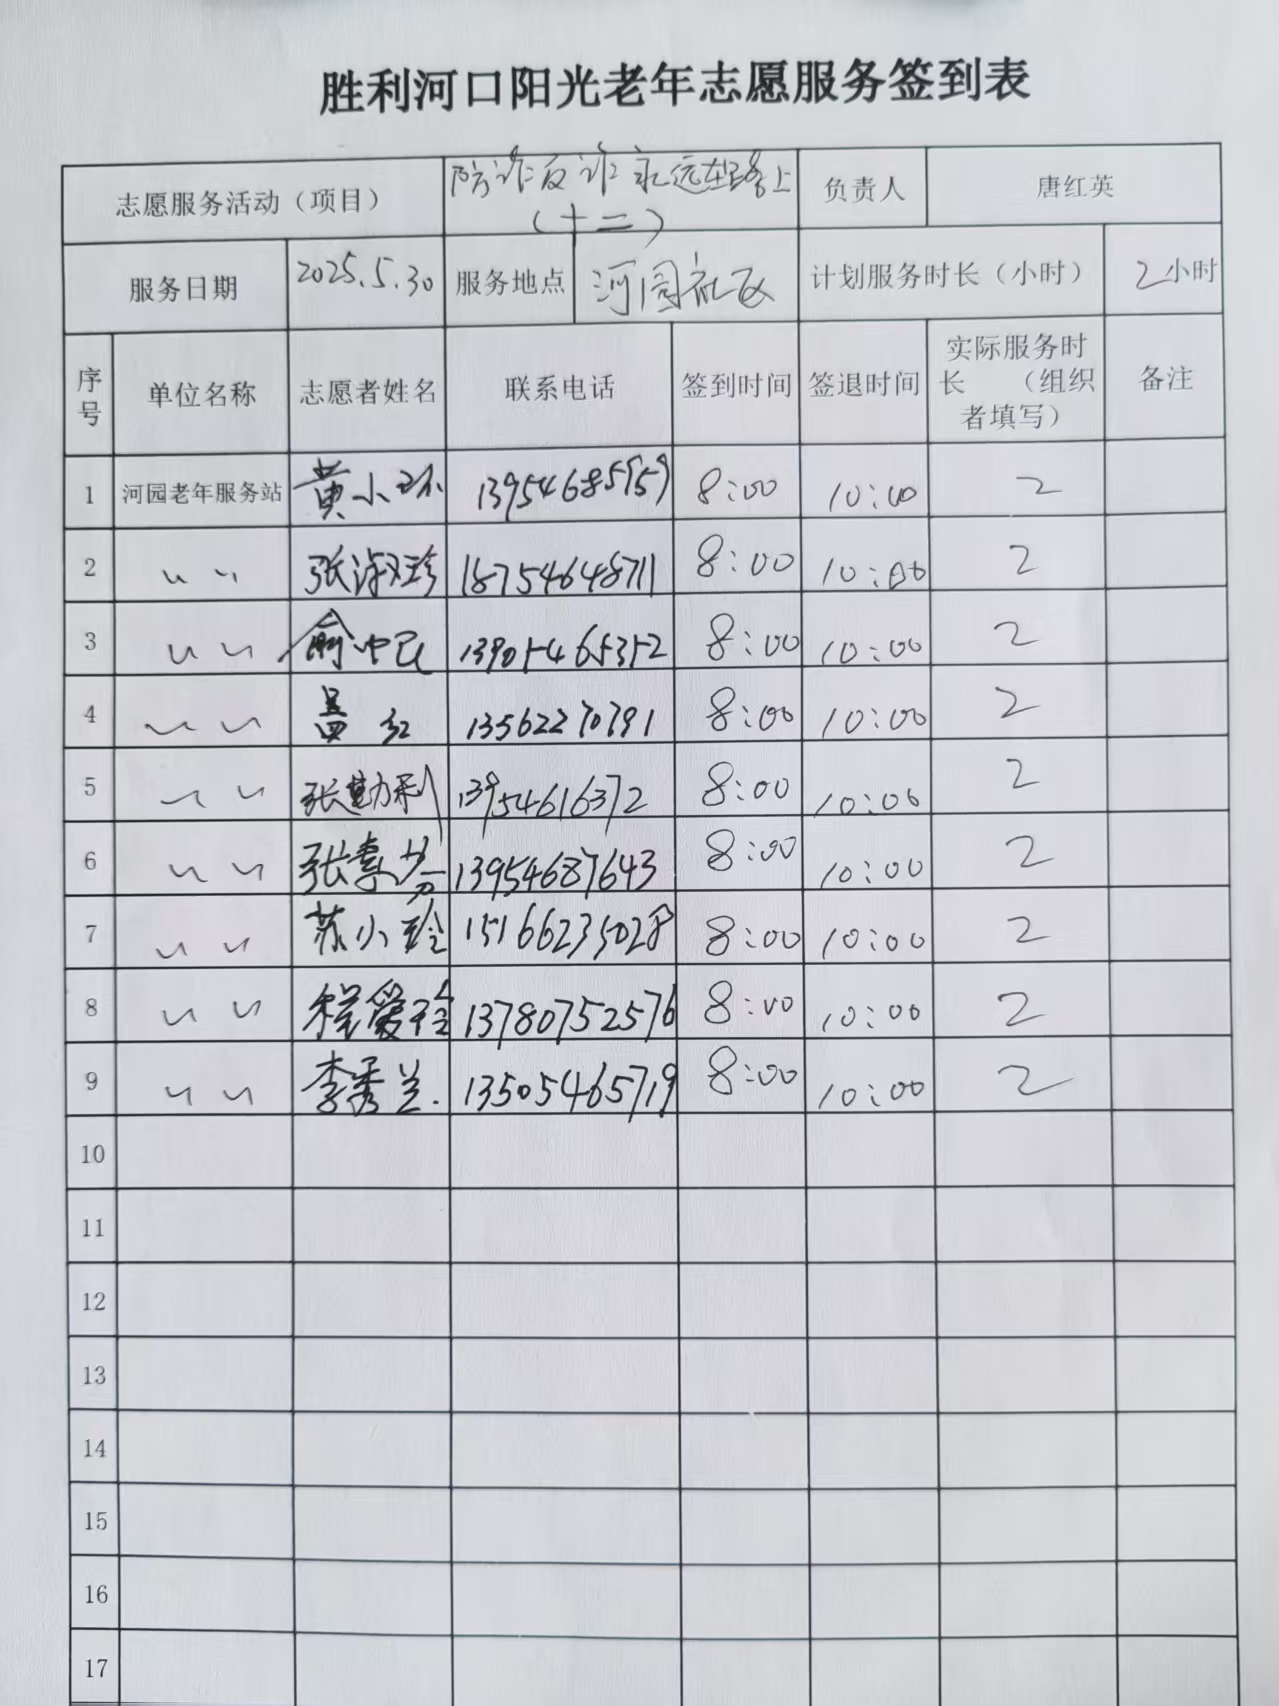 胜利河口阳光老年志愿服务签到表
志愿服务活动（项目） 防诈反诈永远在路上 负责人 唐红英
（十二）
服务日期 2025.5.30 服务地点 河园社区 计划服务时长（小时） 2小时
序号 单位名称 志愿者姓名 联系电话 签到时间 签退时间 实际服务时长 （组织者填写） 备注
1 河园老年服务站 黄小环 13954685959 8:00 10:00 2
2 〃 张淑珍 18754648711 8:00 10:00 2
3 〃 俞忠民 13905465352 8:00 10:00 2
4 〃 红 13562270791 8:00 10:00 2
5 〃 张勤利 13954616372 8:00 10:00 2
6 〃 张素芬 13954687643 8:00 10:00 2
7 〃 苏小玲 15166235028 8:00 10:00 2
8 〃 程爱玲 13780752576 8:00 10:00 2
9 〃 李秀兰. 13505465719 8:00 10:00 2
10
11
12
13
14
15
16
17